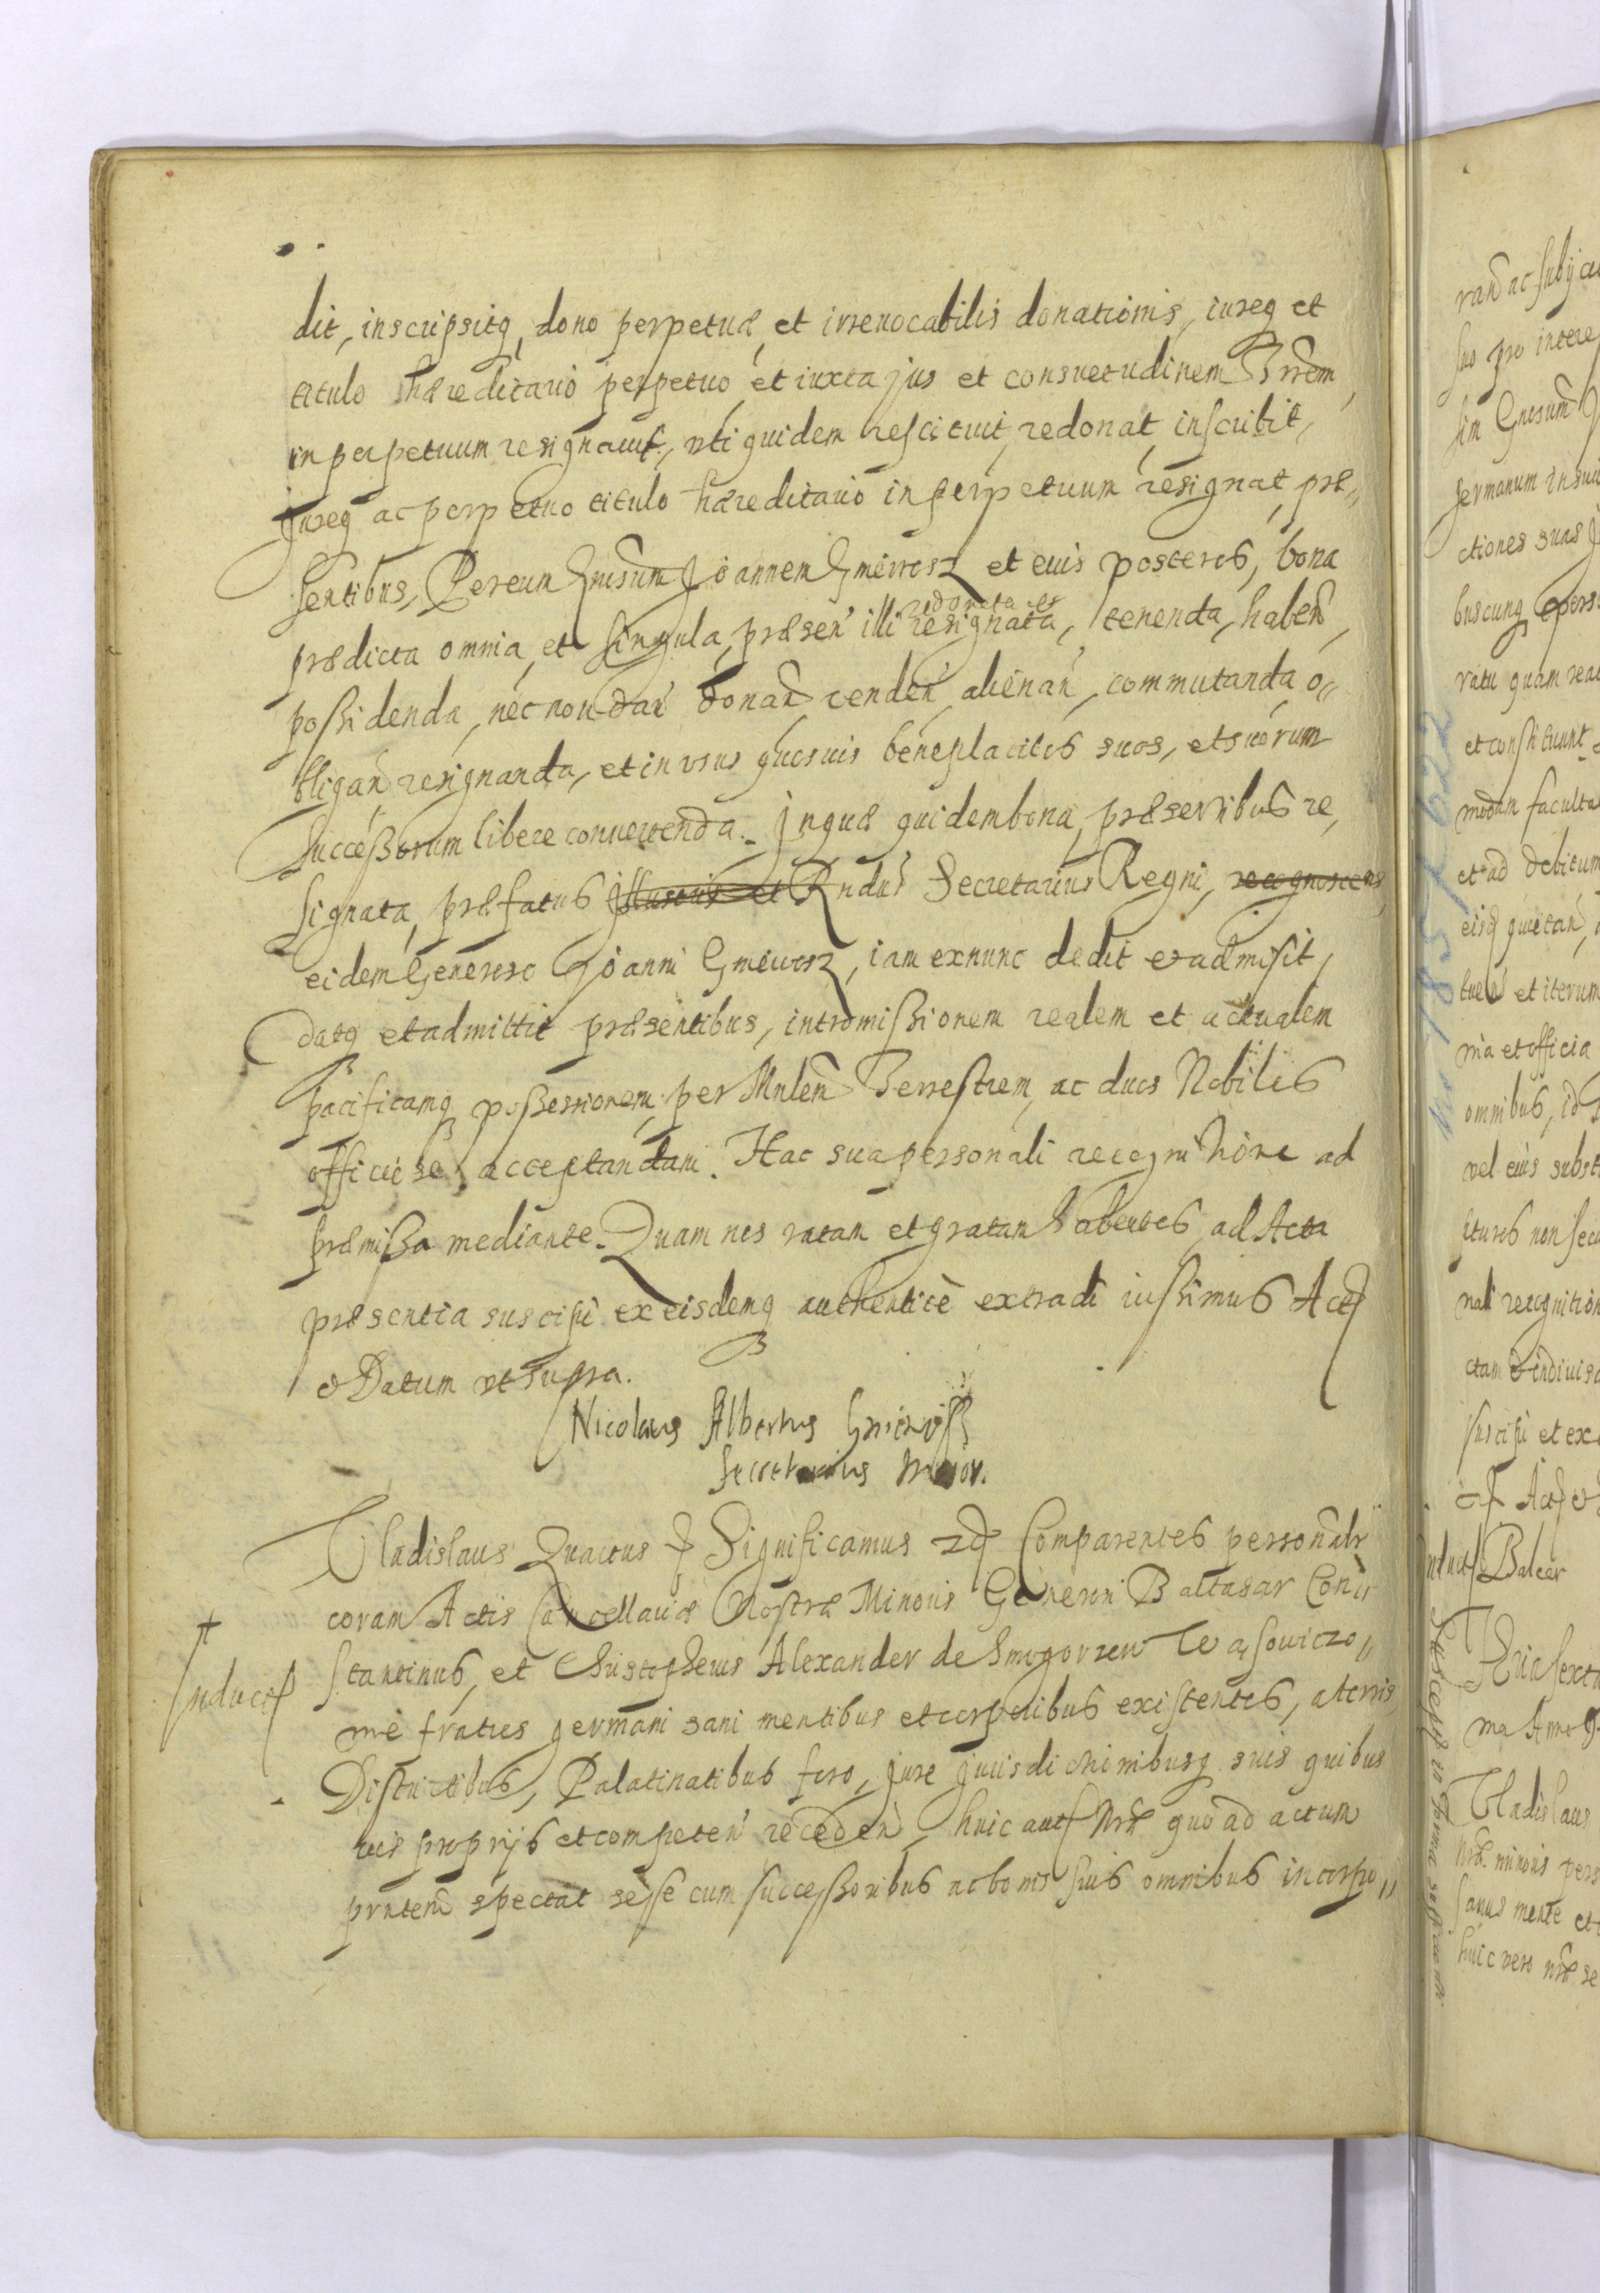 dit, inscripsitq, dono perpetuæ et irreuocabilis donationis, iureq et
titulo hæreditario perpetuo, et iuxta jus et consuetudinem Trrem,
in perpetuum resignauit, uti quidem restituit, redonat, inscribit,
jureq ac perpetuo titulo hæreditario in perpetuum resignat, præ„
sentibus, Per eun Gnrsum Joannem Gmeirosz et eius posteros, bona
redonata et
prædicta omnia, et singula, præsen illi resignata, tenenda, haben,
possidenda, nec non dan donan venden alienan, commutanda o„
bligan resignanda, et in usus quosuis beneplacitos suos, et suorum
successorum libere conuertenda. In quæ quidem bona, præsentibus re,
signata, præfatus Illustris et Rndus Secretarius Regni, recognoscens,
eidem Generoso Joanni Gmeirosz, iam exnunc dedit et admisit,
datq et admittit præsentibus, intromissionem realem et actualem
pacificamq possessionem, per Mnlem Terrestrem, ac duos Nobiles
officiose acceptandam. Hac sua personali recognitione ad
præmissa mediante. Quam nos ratam et gratam habentes, ad Acta
præsentia suscipi ex eisdemq authenticè extradi iussimus Act
& Datum ut supra.
Nicolaus Albertus Gnieuosz
Secretarius Maior.
Vladislaus Quartus Significamus Comparentes personalr
coram Actis Cancellariæ Nostræ Minoris Generosi Baltasar Con
stantinus, et Christophorus Alexander de Smogorzew Wąsowiczo„
nie fratres germani sani mentibus et corporibus existentes, a terris
Districtibus, Palatinatibus foro, jure jurisdictionibusq suis quibus
uis proprijs et competen receden, huic aut Nræ quo ad actum
prntem spectat sese cum successoribus ac bonis suis omnibus incorpo„
Induct
ran ac subijcien
suo pro intere
sim Gnrsum
germanum
ctiones suas
buscunq
ratu quam
et constituunt
modam faculta
et ad debitum
eisq quietan
et iterum
et officia
omnibus, id
vel eius subst
cturos non secu
nali recognition
ctam & indiuisa
suscipi et ex
Act &
Induct Balcer
Feria sexta
ma Anno
Vladislaus
Nræ minoris pers
sanus mente et
huic vero nræ se